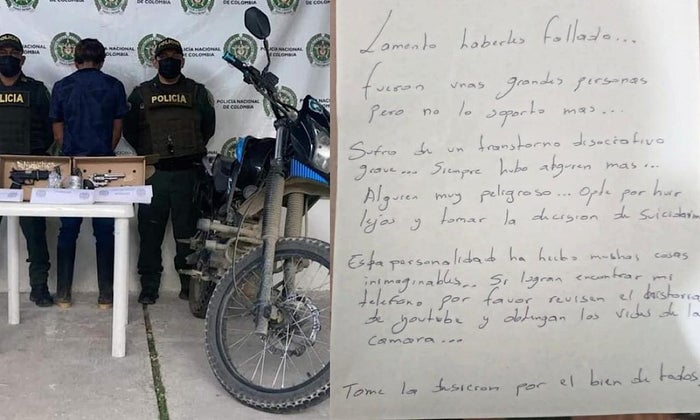 POLICÍA NACIONAL
DE COLOMBIA
POLICÍA NACIONAL
DE COLOMBIA
POLICÍA NACIONAL
DE COLOMBIA
POLICIA
POLICIA
Lamento haberles fallado...
fueron unas grandes personas
pero no lo soporto mas...
Sufro de un transtorno disociativo
grave... Siempre hubo alguien mas...
Alguien muy peligroso... Opte por huir
lejos y tomar la decision de suicidarme
Esta personalidad ha hecho muchas cosas
inimaginables.. Si logran encontrar mi
telefono por favor revisen el historial
de youtube y obtengan los vides de la
camara...
Tome la desicion por el bien de todos